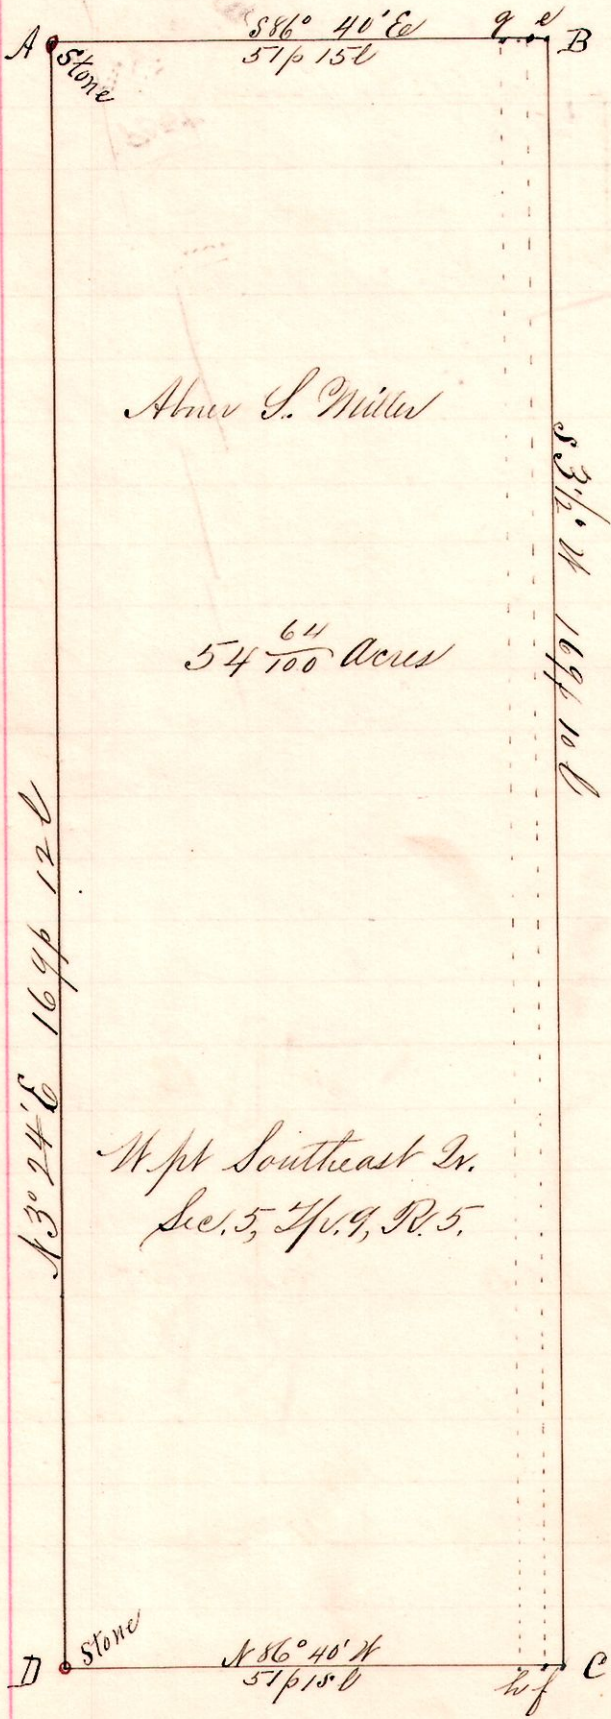 S 86° 40' E
g e
A B
51p 15l
Stone
Abner S. Miller
S 3½° W 169p 10l
54 64/100 Acres
N 3° 24' E 169p 12l
W pt Southeast Qr.
Sec. 5, Tp. 9, R. 5.
Stone
N 86° 40' W
D C
51p 15l
h f